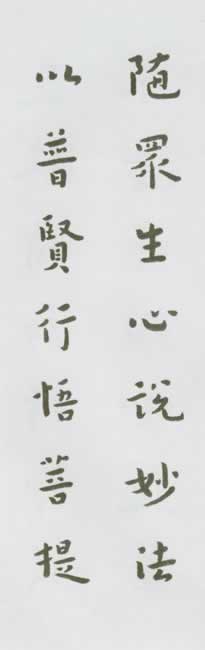 隨眾生心說妙法
以普賢行悟菩提